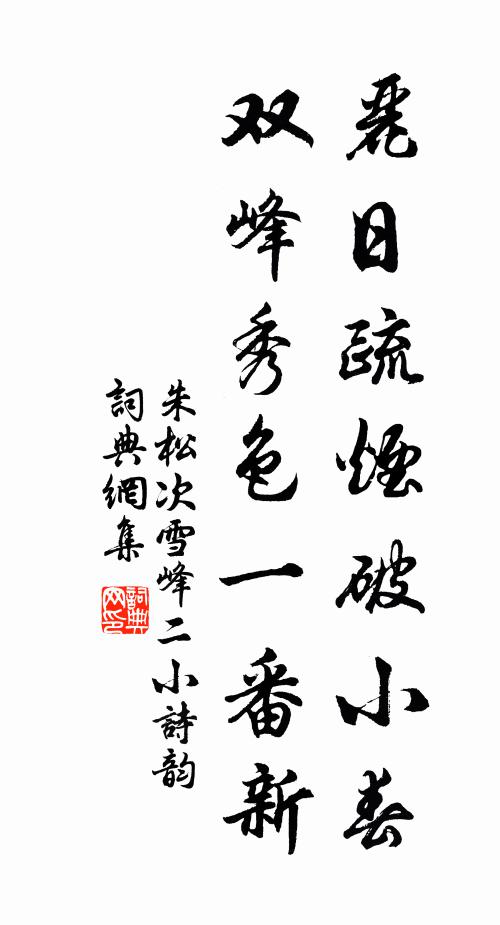 麗日疏煙破小春
双峰秀色一番新
朱松次雪峰二小詩韵
詞典網集
詞典网印